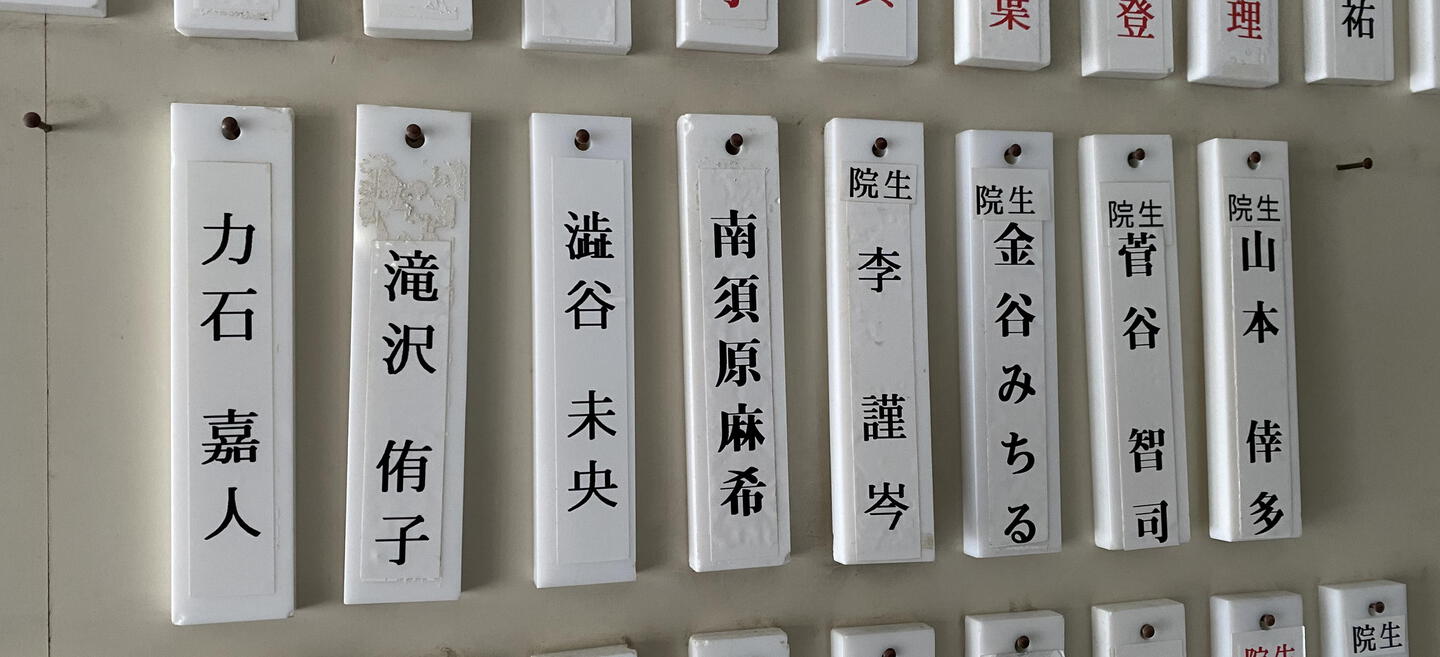 葉
登
理
祐
力石 嘉人
滝沢 侑子
澁谷 未央
南須原麻希
院生
李 謹岑
院生
金谷みちる
院生
菅谷 智司
院生
山本 倖多
院生
院生